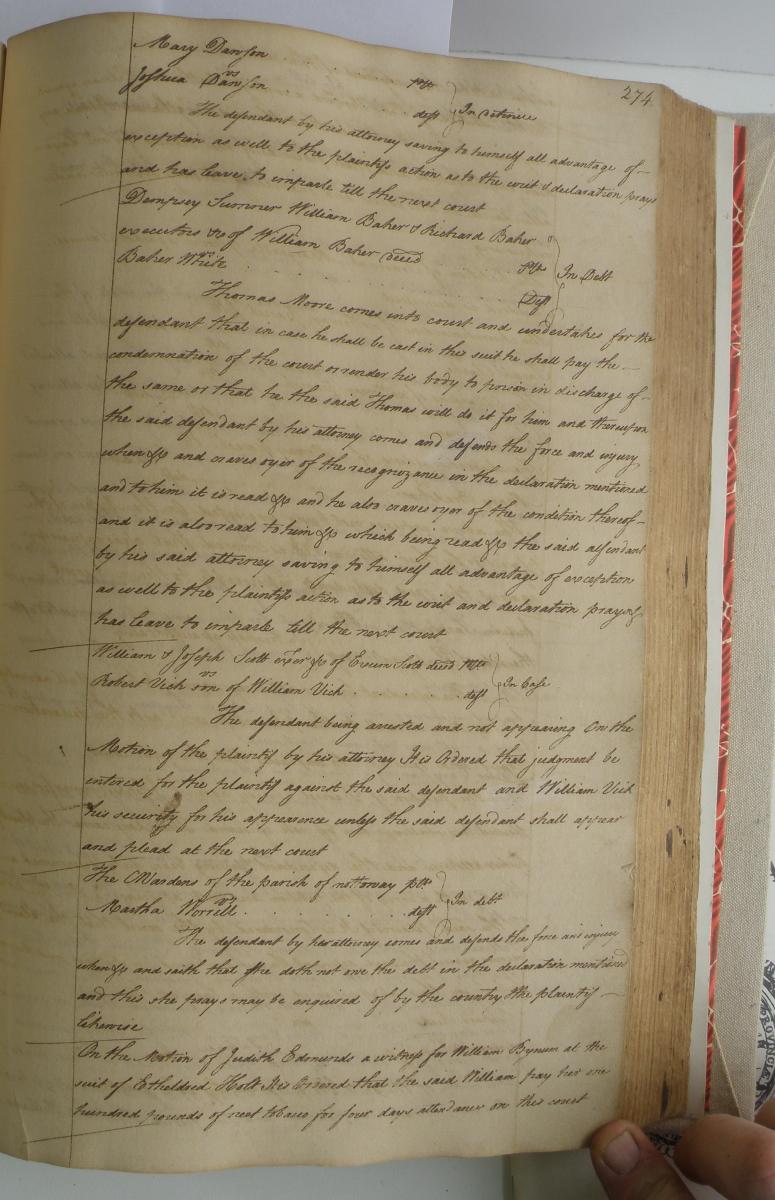 274
Mary Dawson . . . . . . . . plt
vs
Joshua Dawson . . . . . . . . deft } In detinue
The defendant by his attorney saving to himself all advantage of
exception as well to the plaintifs action as to the writ & declaration prays
and has leave to imparle till the next court
Dempsey Sumner William Baker & Richard Baker
executors &c of William Baker decd plts } In Debt
vs
Baker White . . . . . . . . Deft
Thomas Moore comes into court and undertakes for the
defendant that in case he shall be cast in this suit he shall pay the
condemnation of the court or render his body to prison in discharge of
the same or that he the said Thomas will do it for him and thereupon
the said defendant by his attorney comes and defends the force and injury
when &c and craves oyer of the recognizance in the declaration mentioned
and to him it is read &c and he also craves oyer of the condition thereof
and it is also read to him &c which being read &c the said defendant
by his said attorney saving to himself all advantage of exception
as well to the plaintifs action as to the writ and declaration prays &
has leave to imparle till the next court
William & Joseph Scott exer &c of Exum Scott decd plts } In Case
vs
Robert Vick son of William Vick . . . . . . deft
The defendant being arrested and not appearing On the
Motion of the plaintif by his attorney It is Ordered that judgment be
entered for the plaintif against the said defendant and William Vick
his security for his appearence unless the said defendant shall appear
and plead at the next court
The CWardens of the parish of nottoway plts } In debt
vs
Martha Worrell . . . . . . . deft
The defendant by her attorney comes and defends the force and injury
when &c and saith that she doth not owe the debt in the declaration mentioned
and this she prays may be enquired of by the country & the plaintif
likewise
On the Motion of Judith Edmunds a witness for William Bynum at the
suit of Etheldred Holt It is Ordered that the said William pay her one
hundred pounds of neet tobacco for four days attendance on this court